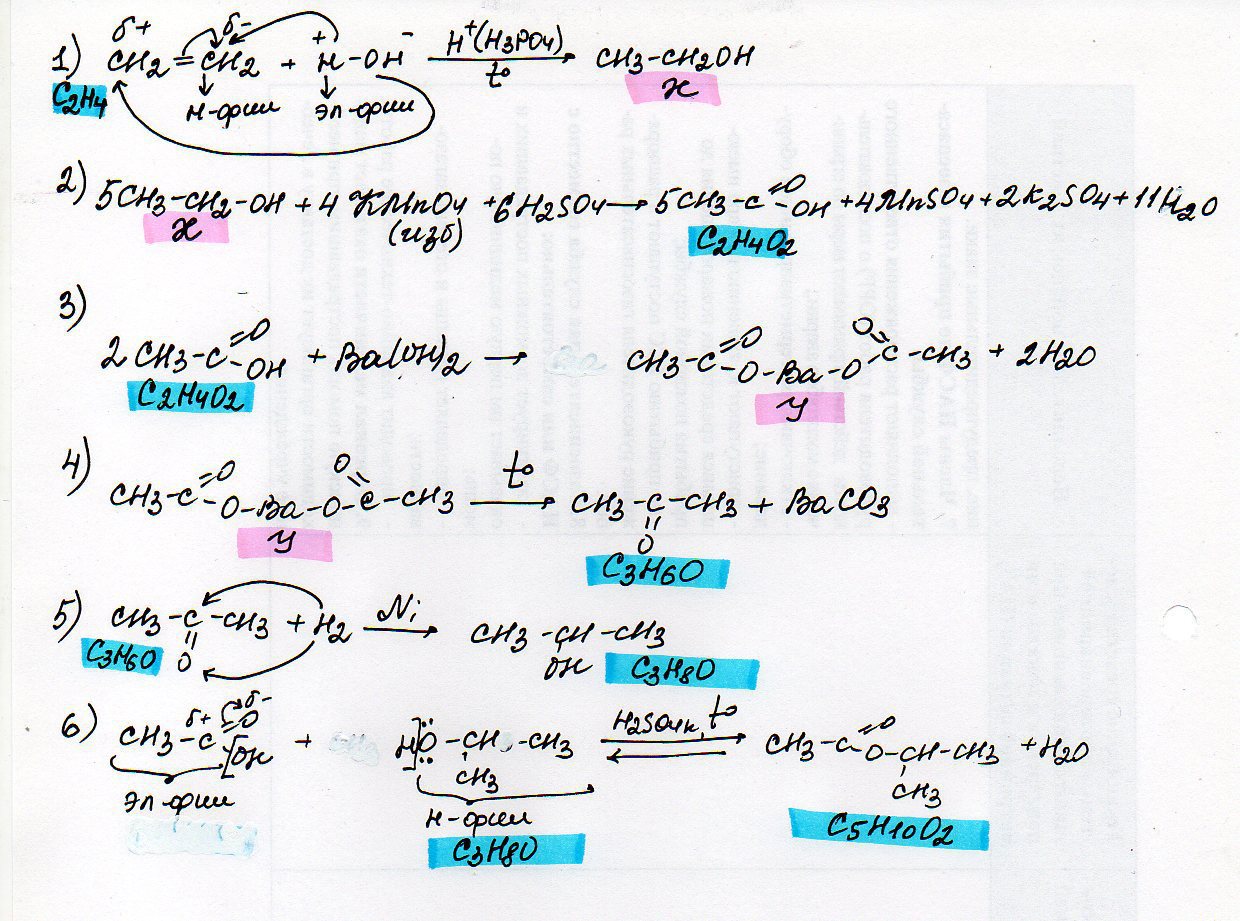 δ+ δ-
1) CH2=CH2 + H+-OH- H+(H3PO4) t° CH3-CH2OH
C2H4 Н-фил Эл-фил X
2) 5CH3-CH2-OH + 4KMnO4 + 6H2SO4 → 5CH3-C=O-OH + 4MnSO4 + 2K2SO4 + 11H2O
X (изб) C2H4O2
3) 2CH3-C=O-OH + Ba(OH)2 → CH3-C=O-O-Ba-O-C=O-CH3 + 2H2O
C2H4O2 Y
4) CH3-C=O-O-Ba-O-C=O-CH3 t° → CH3-C-CH3 + BaCO3
Y O
C3H6O
5) CH3-C-CH3 + H2 Ni → CH3-CH-CH3
C3H6O O OH C3H8O
6) CH3-C=O[OH δ+ δ- + H]O-CH-CH3 H2SO4к, t° CH3-C=O-O-CH-CH3 + H2O
CH3 CH3
Эл-фил Н-фил
C3H8O C5H10O2